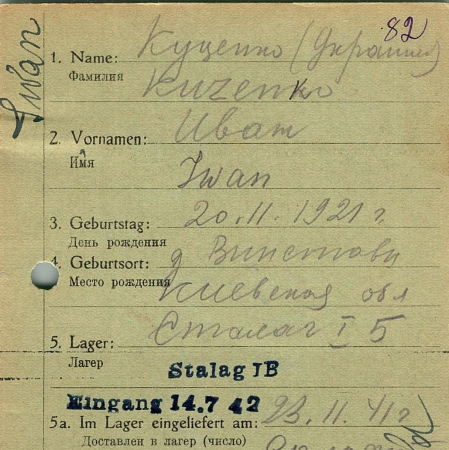 82
Iwan
1. Name: Куценко (Украинец)
Фамилия
Kuzenko
2. Vornamen: Иван
Имя
Iwan
3. Geburtstag: 20.11.1921 г.
День рождения
4. Geburtsort: д
Место рождения Киевская обл
5. Lager: Сталаг I Б
Лагер
Stalag IB
Eingang 14.7 42
5a. Im Lager eingeliefert am: 23.11.41 г
Доставлен в лагер (число)